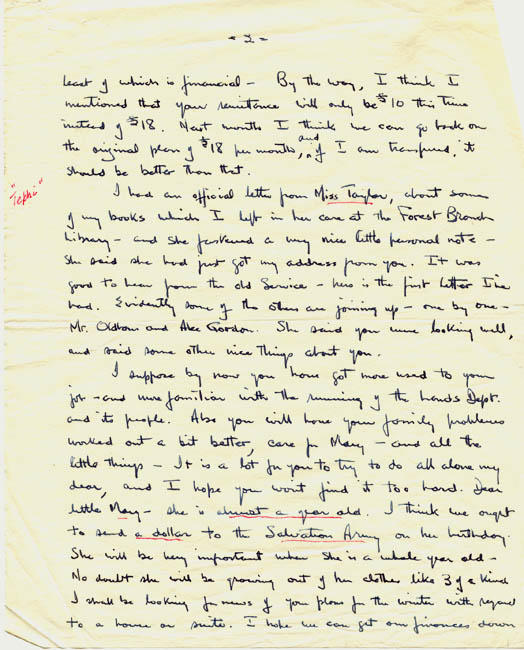 - 2 -
least of which is financial - By the way, I think I
mentioned that your remittance will only be $10 this time
instead of $18. Next month I think we can go back on
the original plan of $18 per month, and if I am transferred, it
should be better than that.
"Tephi"
I had an official letter from Miss Taylor, about some
of my books which I left in her care at the Forest Branch
Library - and she fastened a very nice little personal note -
She said she had just got my address from you. It was
good to hear from the old Service - hers is the first letter I've
had. Evidently some of the others are joining up - one by one -
Mr. Oldham and Alec Gordon. She said you were looking well,
and said some other nice things about you.
I suppose by now you have got more used to your
job - and more familiar with the running of the Lands Dept.
and its people. Also you will have your family problems
worked out a bit better, care for Mary - and all the
little things - It is a lot for you to try to do all alone my
dear, and I hope you won't find it too hard. Dear
little Mary - she is almost a year old. I think we ought
to send a dollar to the Salvation Army on her birthday.
She will be very important when she is a whole year old -
No doubt she will be growing out of her clothes like 3 of a kind
I shall be looking for news of your plans for the winter with regard
to a house or suite. I hope we can get our finances down